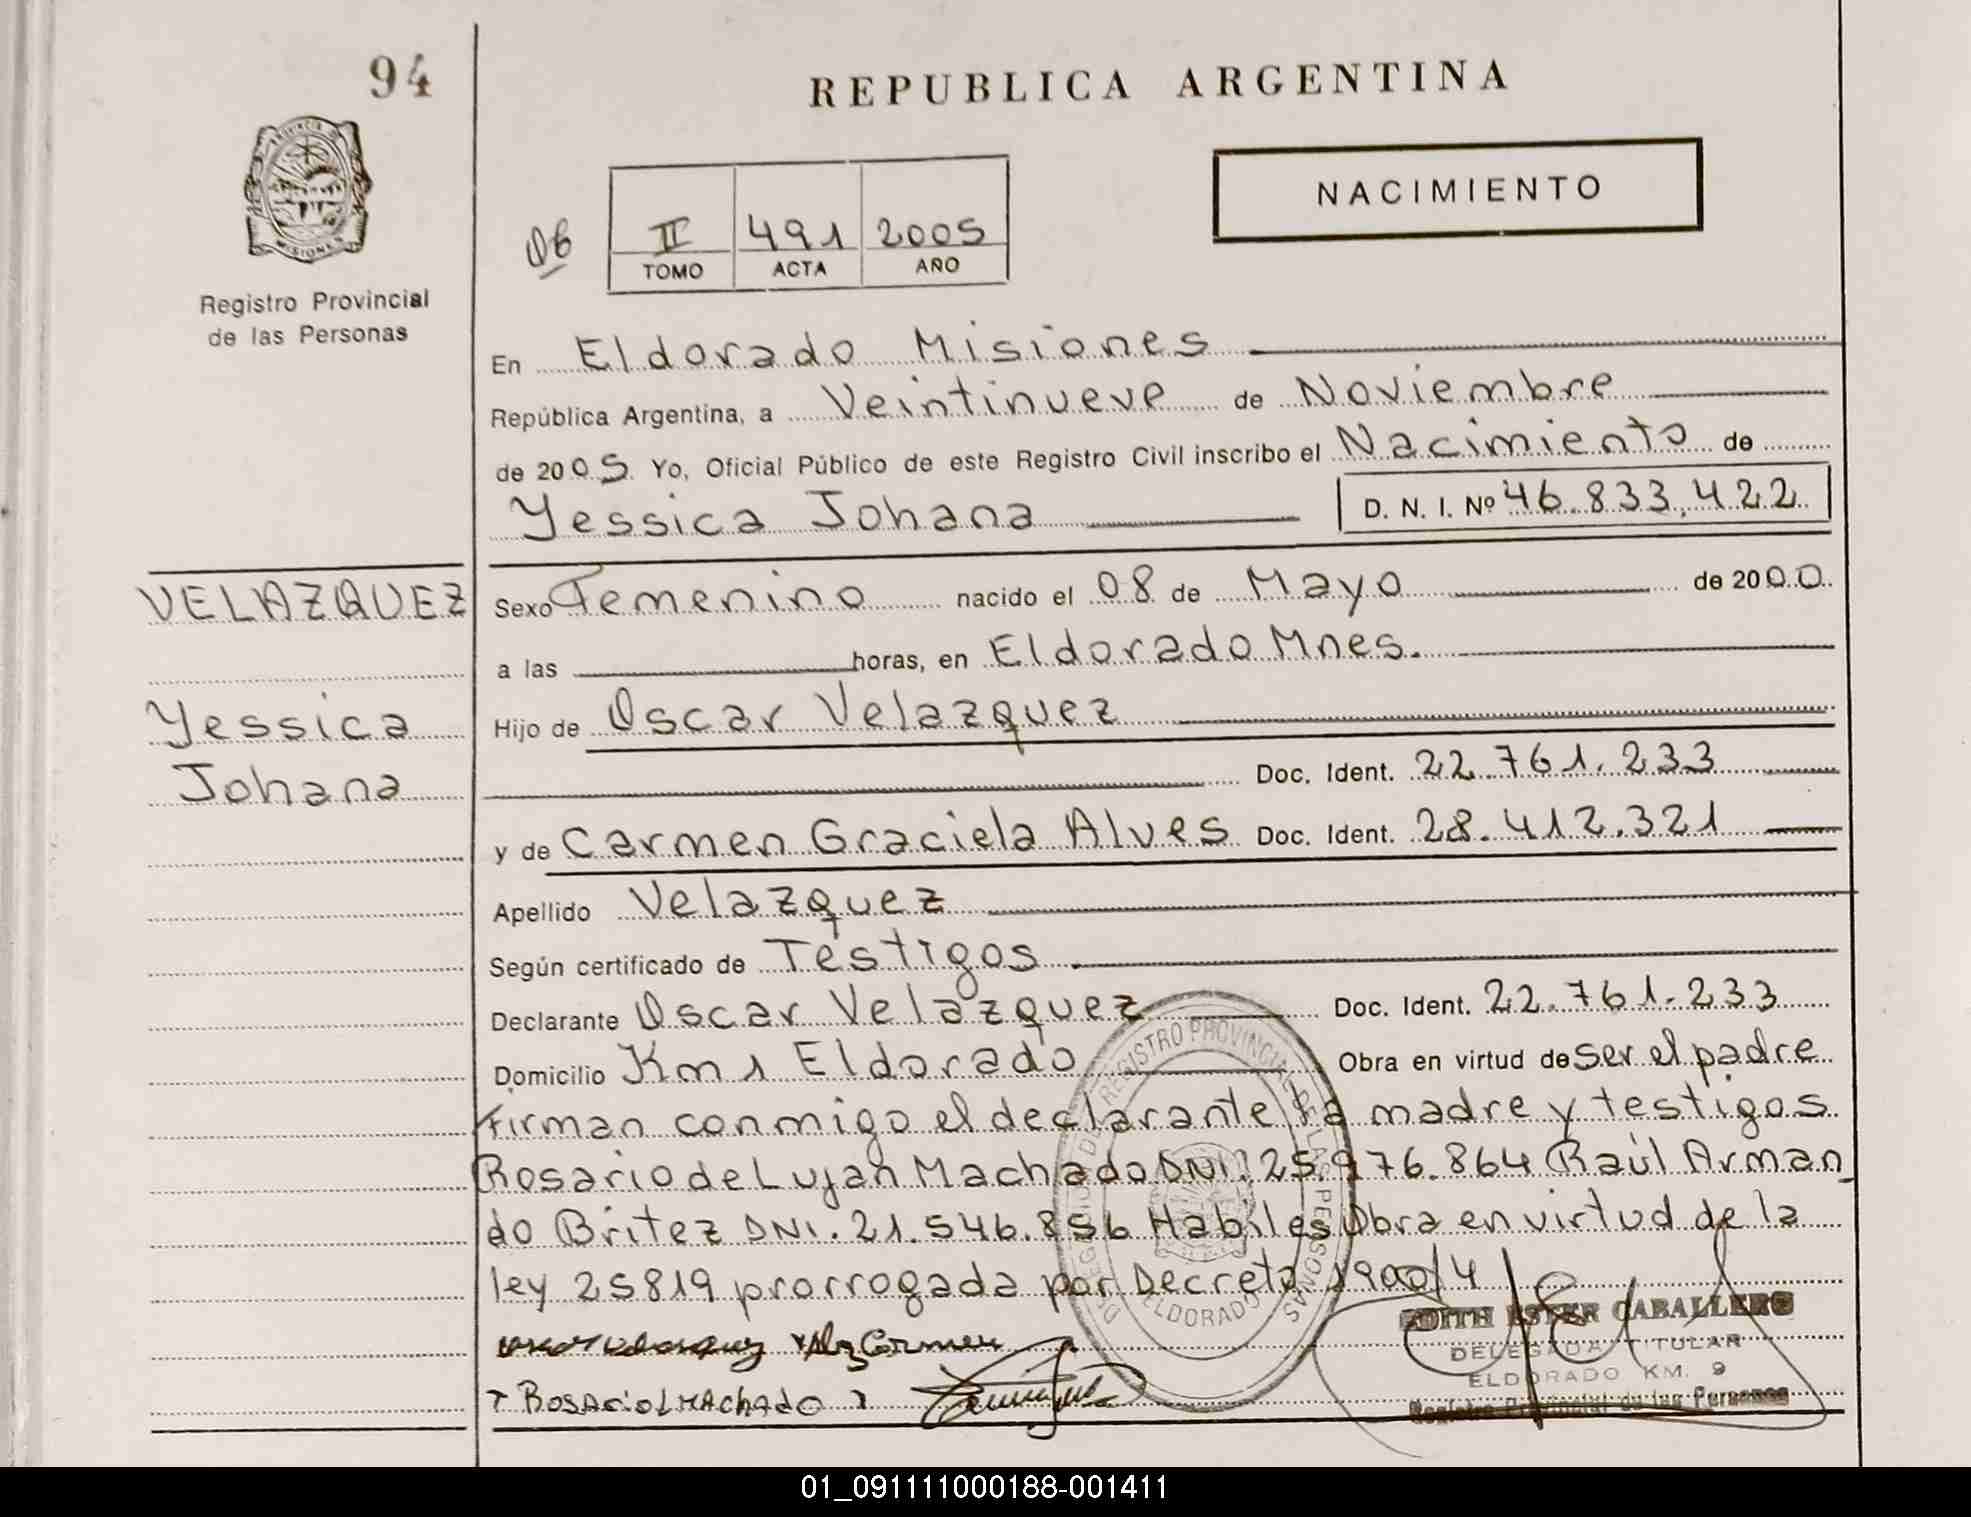 94
REPUBLICA ARGENTINA
PROVINCIA DE
MISIONES
NACIMIENTO
06
II 491 2005
TOMO ACTA AÑO
Registro Provincial
de las Personas
En Eldorado Misiones
República Argentina, a Veintinueve de Noviembre
de 2005 Yo, Oficial Público de este Registro Civil inscribo el Nacimiento de
Yessica Johana D. N. I. Nº 46.833.422
VELAZQUEZ
Yessica
Johana
Sexo Femenino nacido el 08 de Mayo de 2000
a las horas, en Eldorado Mnes.
Hijo de Oscar Velazquez
Doc. Ident. 22.761.233
y de Carmen Graciela Alves Doc. Ident. 28.412.321
Apellido Velazquez
Según certificado de Testigos
Declarante Oscar Velazquez Doc. Ident. 22.761.233
Domicilio Km 1 Eldorado Obra en virtud de ser el padre
Firman conmigo el declarante la madre y testigos
Rosario de Lujan Machado DNI: 25.976.864 Raúl Arman
do Britez DNI. 21.546.856 Habiles Obra en virtud de la
ley 25819 prorrogada por Decreto 1900/4
REGISTRO PROVINCIAL DE LAS PERSONAS
ELDORADO
Carmen
Rosario L Machado
EDITH ESTER CABALLERO
DELEGADA TITULAR
ELDORADO KM. 9
Registro Provincial de las Personas
01_091111000188-001411